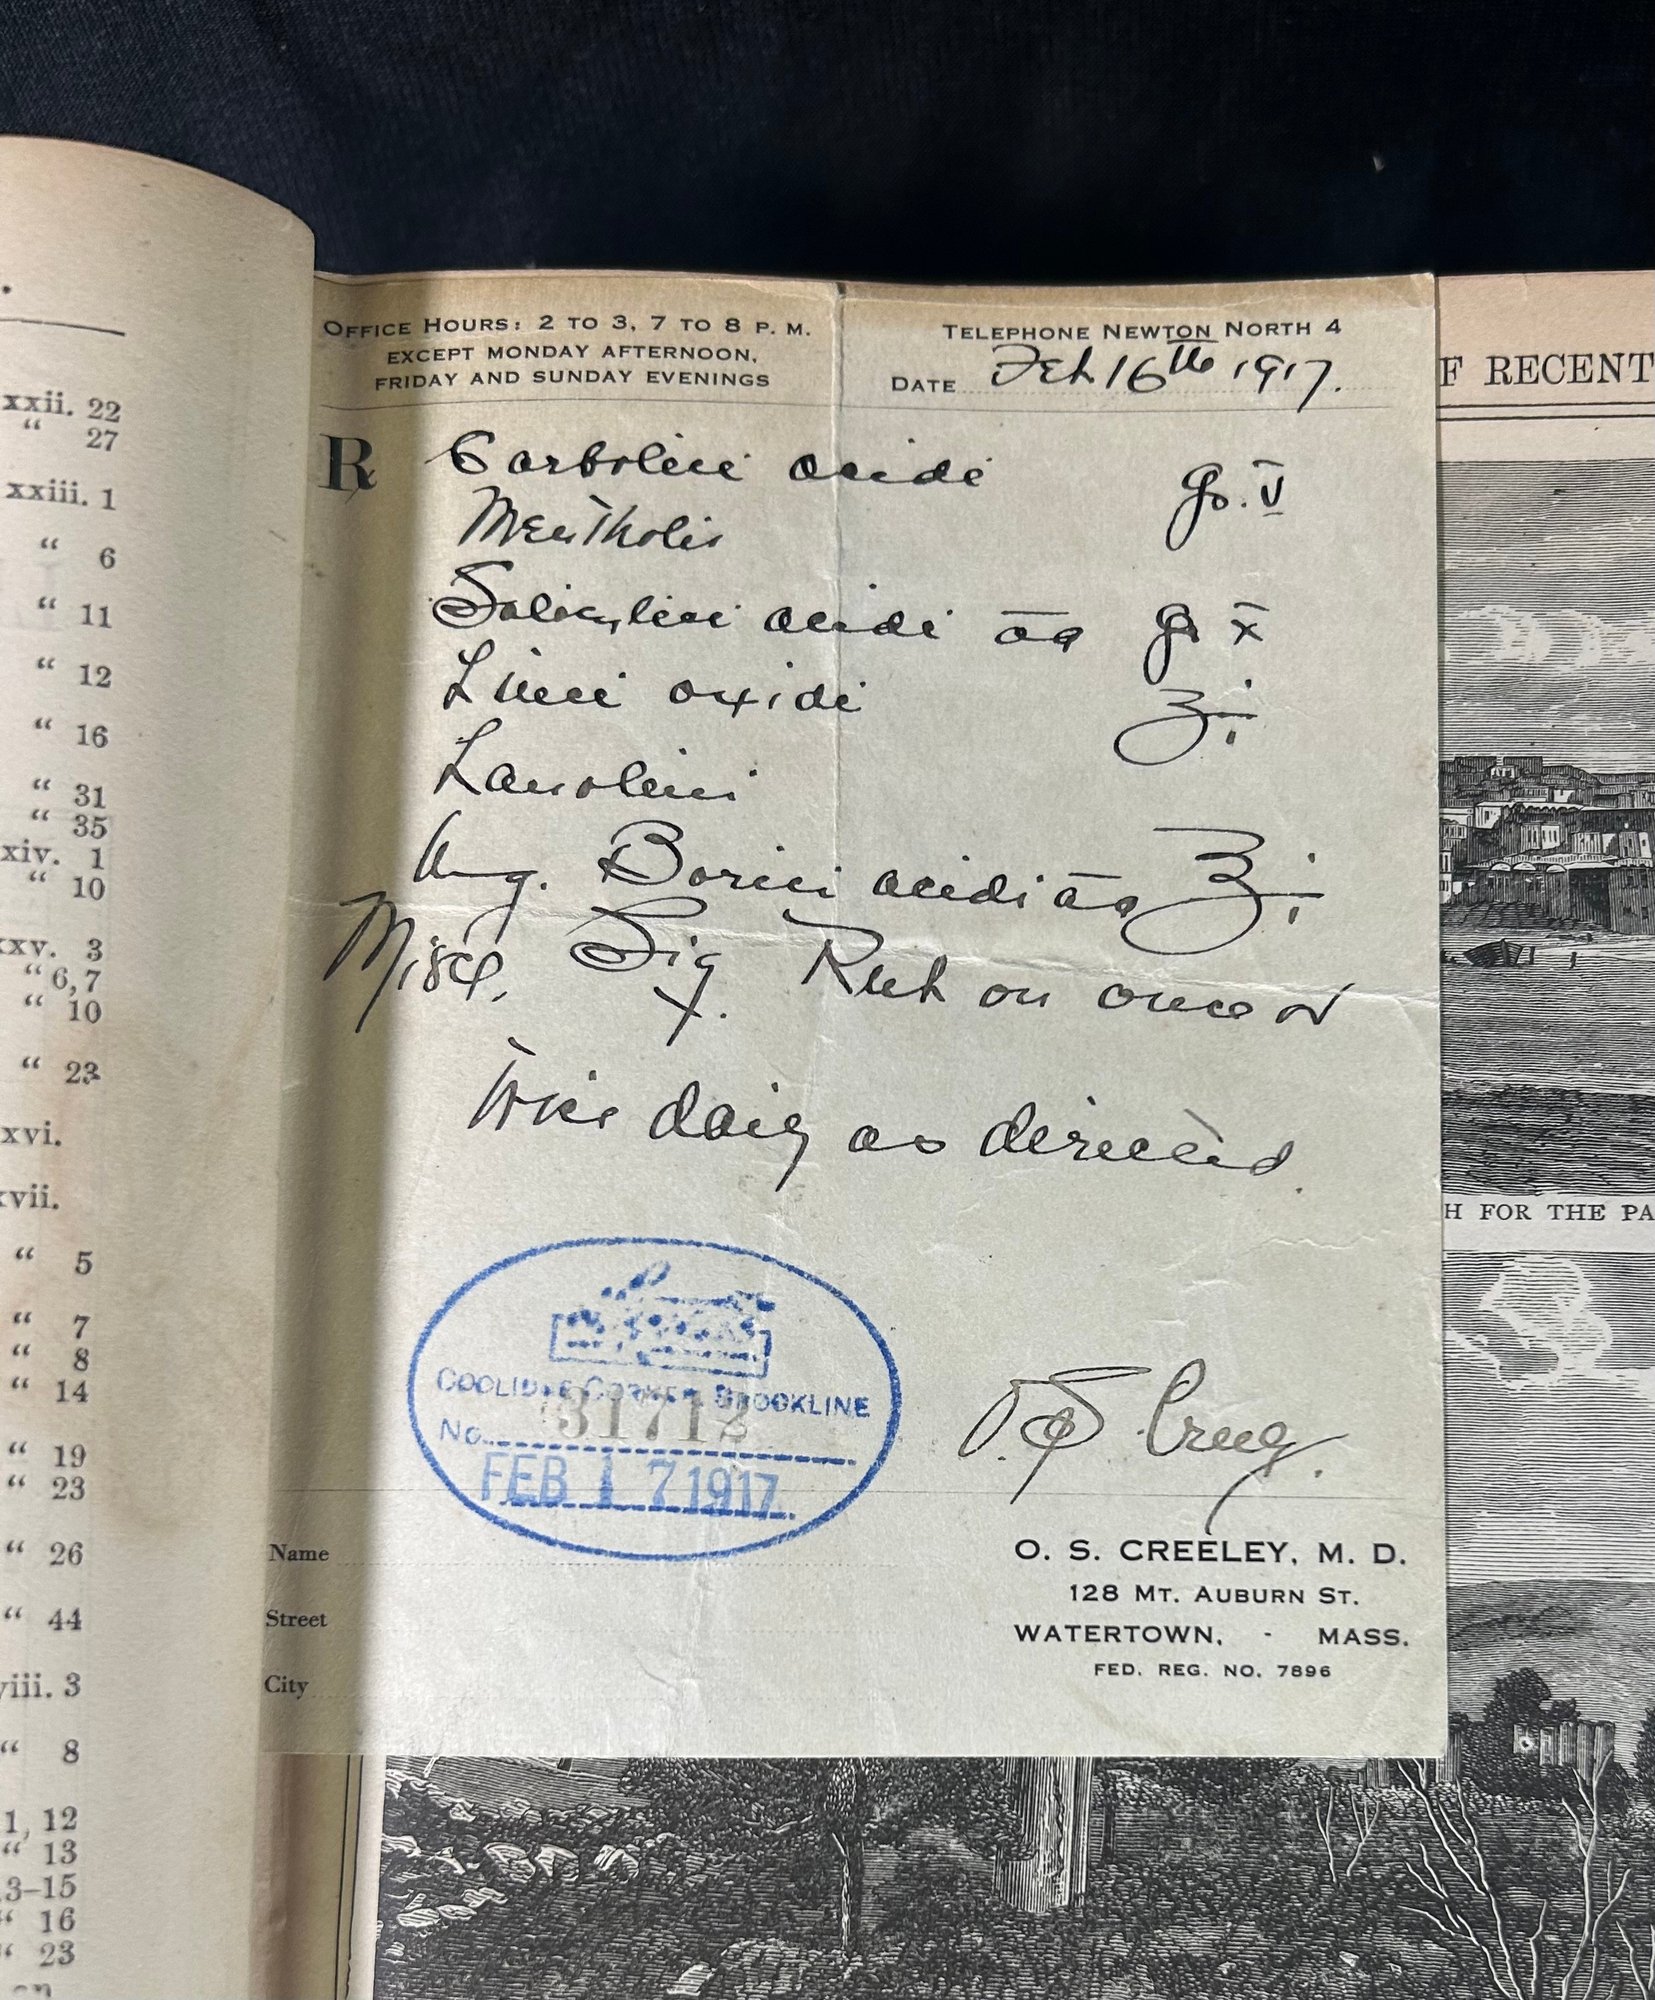 xxii. 22
“ 27
xxiii. 1
“ 6
“ 11
“ 12
“ 16
“ 31
“ 35
xiv. 1
“ 10
xxv. 3
“ 6, 7
“ 10
“ 23
xvi.
xvii.
“ 5
“ 7
“ 8
“ 14
“ 19
“ 23
“ 26
“ 44
viii. 3
“ 8
1, 12
“ 13
3–15
“ 16
“ 23
OFFICE HOURS: 2 TO 3, 7 TO 8 P. M.
EXCEPT MONDAY AFTERNOON,
FRIDAY AND SUNDAY EVENINGS
TELEPHONE NEWTON NORTH 4
DATE Feb 16th 1917.
℞ Carbolici acidi gr. v
Mentholis
Salicylici acidi āā gr x
Zinci oxidi ʒi
Lanolini
Ung. Borici acidi āā ℥i
Misce. Sig. Rub on once or
twice daily as directed.
COOLIDGE CORNER BROOKLINE
No. 31712
FEB 17 1917
O. S. Creeley.
O. S. CREELEY, M. D.
128 MT. AUBURN ST.
WATERTOWN, - MASS.
FED. REG. NO. 7896
Name
Street
City
F RECENT
H FOR THE PA